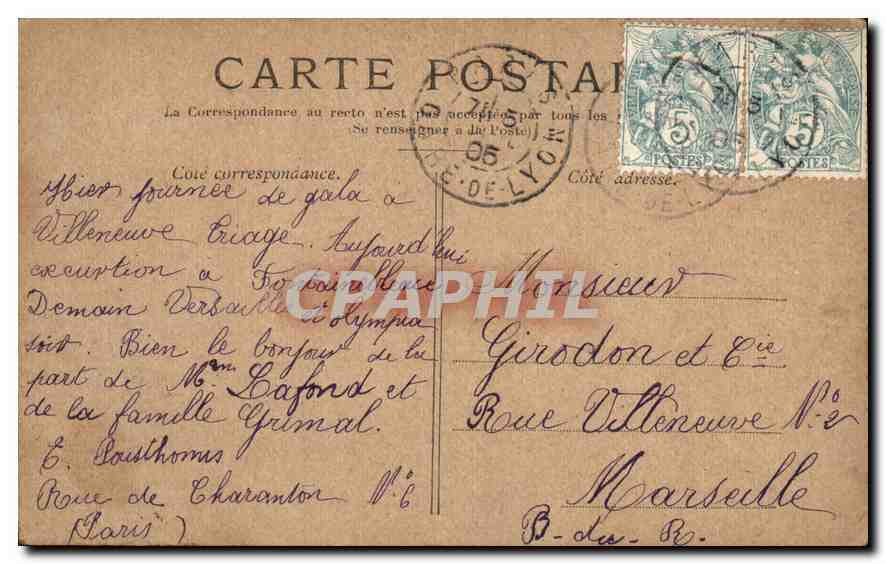 CARTE POSTAL
La Correspondance au recto n'est pas acceptée par tous les
(Se renseigner à la Poste)
Côté correspondance.
Côté adresse.
Hier journée de gala à
Villeneuve Triage. Aujourd'hui
excurtion à Fontainebleau
Demain Versaille et olympia
soir. Bien le bonjour de la
part de Mme Lafond et
de la famille Grimal.
E. Pousthomis
Rue de Charanton No 6
(Paris)
Monsieur
Girodon et Cie
Rue Villeneuve No 2
Marseille
B-du-R.
5c
POSTES
5c
POSTES
05
RE-DE-LYON
CPAPHIL